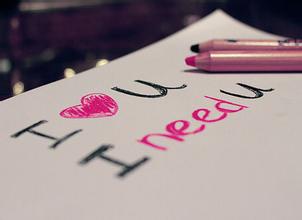 H ♥ U
H need U